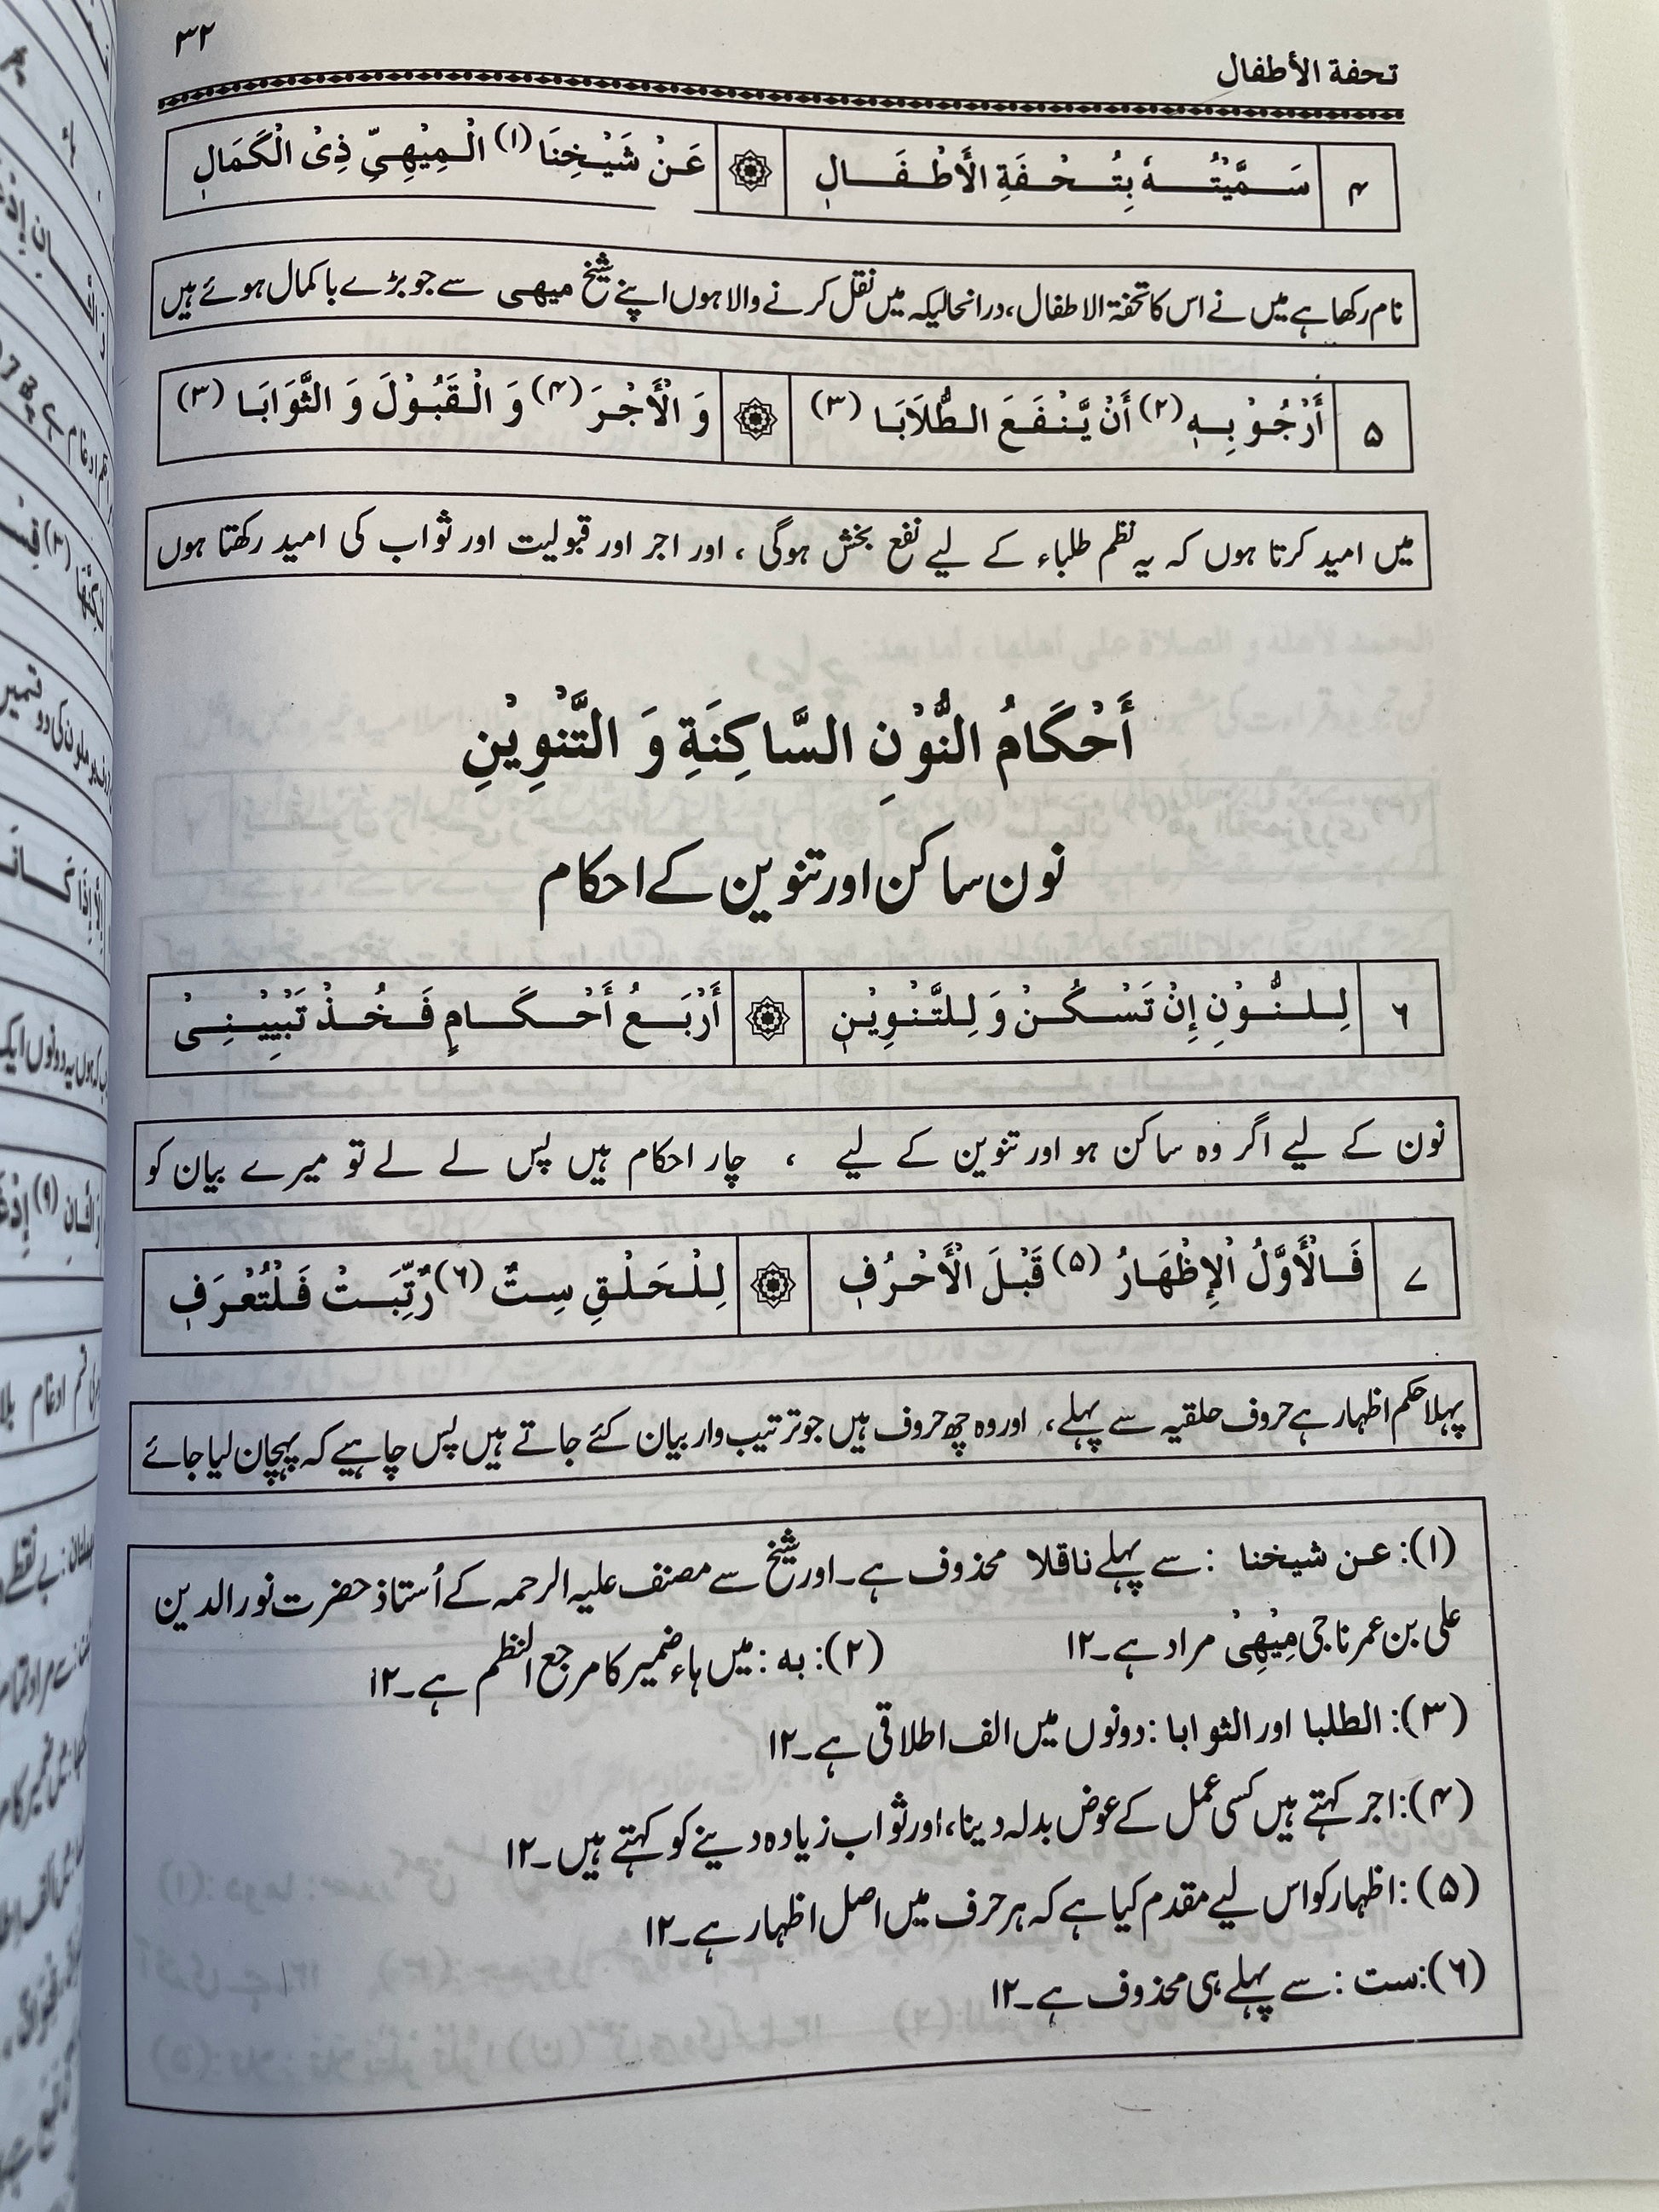 تحفة الأطفال ۳۲
۴ سَمَّيْتُهٗ بِتُحْفَةِ الْأَطْفَالِ عَنْ شَيْخِنَا (۱) الْمِيْهِيِّ ذِی الْكَمَالِ
نام رکھا ہے میں نے اس کا تحفۃ الاطفال، درانحالیکہ میں نقل کرنے والا ہوں اپنے شیخ میھی سے جو بڑے باکمال ہوئے ہیں
۵ أَرْجُوْ بِهٖ (۲) أَنْ يَّنْفَعَ الطُّلَابَا (۳) وَ الْأَجْرَ (۴) وَ الْقَبُوْلَ وَ الثَّوَابَا (۳)
میں امید کرتا ہوں کہ یہ نظم طلباء کے لیے نفع بخش ہوگی ، اور اجر اور قبولیت اور ثواب کی امید رکھتا ہوں
أَحْكَامُ النُّوْنِ السَّاكِنَةِ وَ التَّنْوِيْنِ
نون ساکن اور تنوین کے احکام
۶ لِلنُّوْنِ إِنْ تَسْكُنْ وَ لِلتَّنْوِيْنِ أَرْبَعُ أَحْكَامٍ فَخُذْ تَبْيِيْنِیْ
نون کے لیے اگر وہ ساکن ہو اور تنوین کے لیے ، چار احکام ہیں پس لے لے تو میرے بیان کو
۷ فَالْأَوَّلُ الْإِظْهَارُ (۵) قَبْلَ الْأَحْرُفِ لِلْحَلْقِ سِتٌّ (۶) رُتِّبَتْ فَلْتُعْرَفِ
پہلا حکم اظہار ہے حروف حلقیہ سے پہلے، اور وہ چھ حروف ہیں جو ترتیب وار بیان کئے جاتے ہیں پس چاہیے کہ پہچان لیا جائے
(۱): عن شیخنا : سے پہلے ناقلا محذوف ہے۔ اور شیخ سے مصنف علیہ الرحمہ کے اُستاذ حضرت نور الدین
علی بن عمر ناجی مِیْھِیْ مراد ہے۔۱۲ (۲): به : میں ہاء ضمیر کا مرجع النظم ہے۔۱۲
(۳): الطلبا اور الثوابا : دونوں میں الف اطلاقی ہے۔۱۲
(۴): اجر کہتے ہیں کسی عمل کے عوض بدلہ دینا، اور ثواب زیادہ دینے کو کہتے ہیں۔۱۲
(۵): اظہار کو اس لیے مقدم کیا ہے کہ ہر حرف میں اصل اظہار ہے۔۱۲
(۶): ست : سے پہلے ہی محذوف ہے۔۱۲